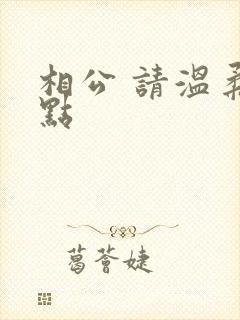 相公 請溫柔
點
葛薈婕